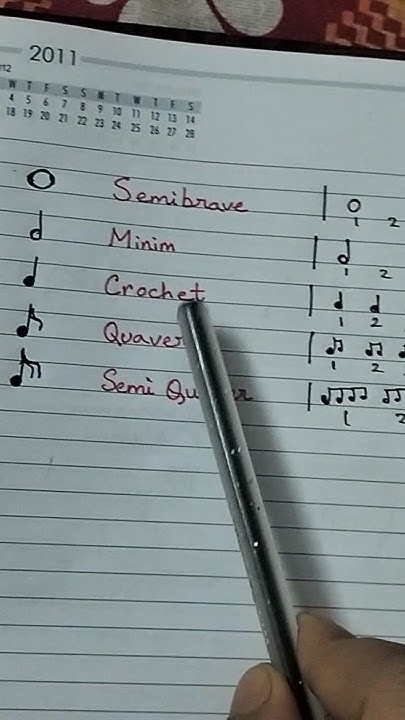 2011
W T F S S M T W T F S
4 5 6 7 8 9 10 11 12 13 14
18 19 20 21 22 23 24 25 26 27 28
Semibrave
1 2
Minim
1 2
Crochet
1 2
Quaver
1 2
Semi
1 2